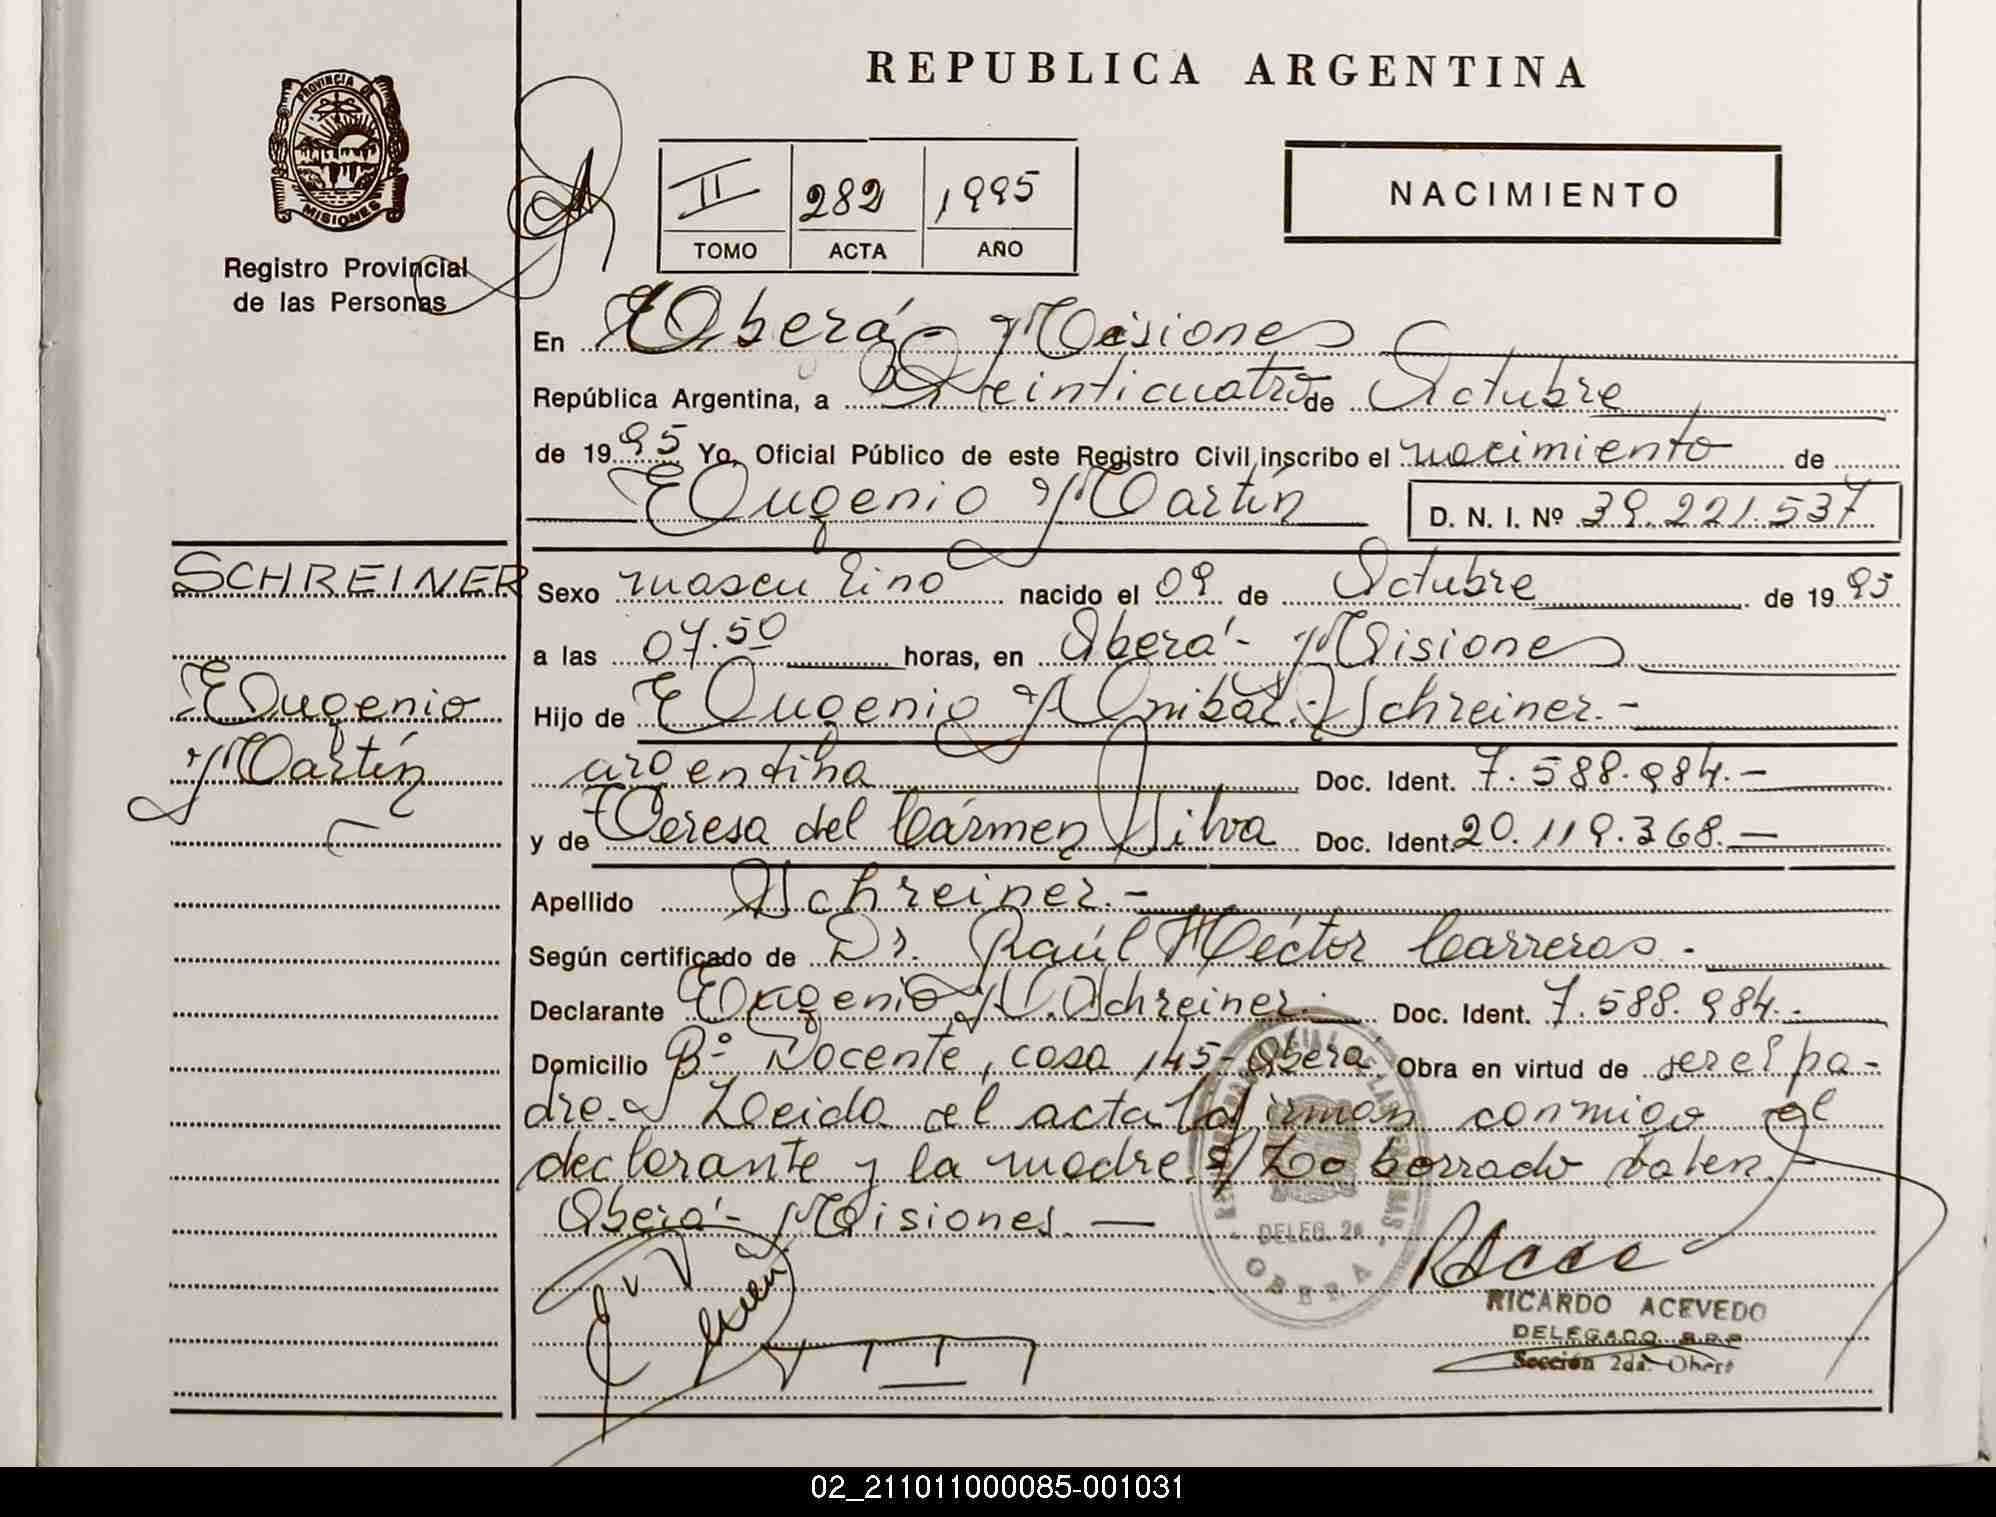 REPUBLICA ARGENTINA
PROVINCIA DE MISIONES
Registro Provincial
de las Personas
II 282 1995
TOMO ACTA AÑO
NACIMIENTO
En Oberá Misiones
República Argentina, a Veinticuatro de Octubre
de 1995 Yo, Oficial Público de este Registro Civil inscribo el nacimiento de
Eugenio Martín D. N. I. Nº 39.221.537
SCHREINER
Eugenio
Martín
Sexo masculino nacido el 09 de Octubre de 1995
a las 07.50 horas, en Oberá - Misiones
Hijo de Eugenio Anibal Schreiner.-
argentina Doc. Ident. 7.588.984.-
y de Teresa del Cármen Silva Doc. Ident. 20.119.368.-
Apellido Schreiner.-
Según certificado de Dr. Raúl Héctor Carreras.-
Declarante Eugenio A. Schreiner. Doc. Ident. 7.588.984.-
Domicilio Bº Docente, casa 145-Oberá Obra en virtud de ser el pa-
dre.- Leida el acta firman conmigo el
declarante y la madre. Lo borrado valen.-
Oberá - Misiones.-
DELEG. 2a
OBERA
RICARDO ACEVEDO
DELEGADO R.P.P.
Sección 2da. Oberá
02_211011000085-001031